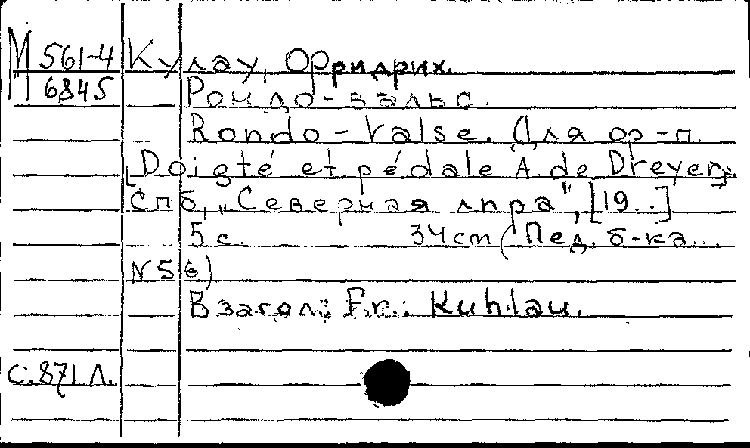 М 561-4 Кулау, Фридрих.
6845 Рондо-вальс.
Rondo-Valse. Для ф-п.
[Doigté et pédale A. de Dreyer].
Спб, "Северная лира", [19..]
5 с. 34 cm (Пед. б-ка...
N 56)
В загол.: Fr. Kuhlau.
С.871 Л.